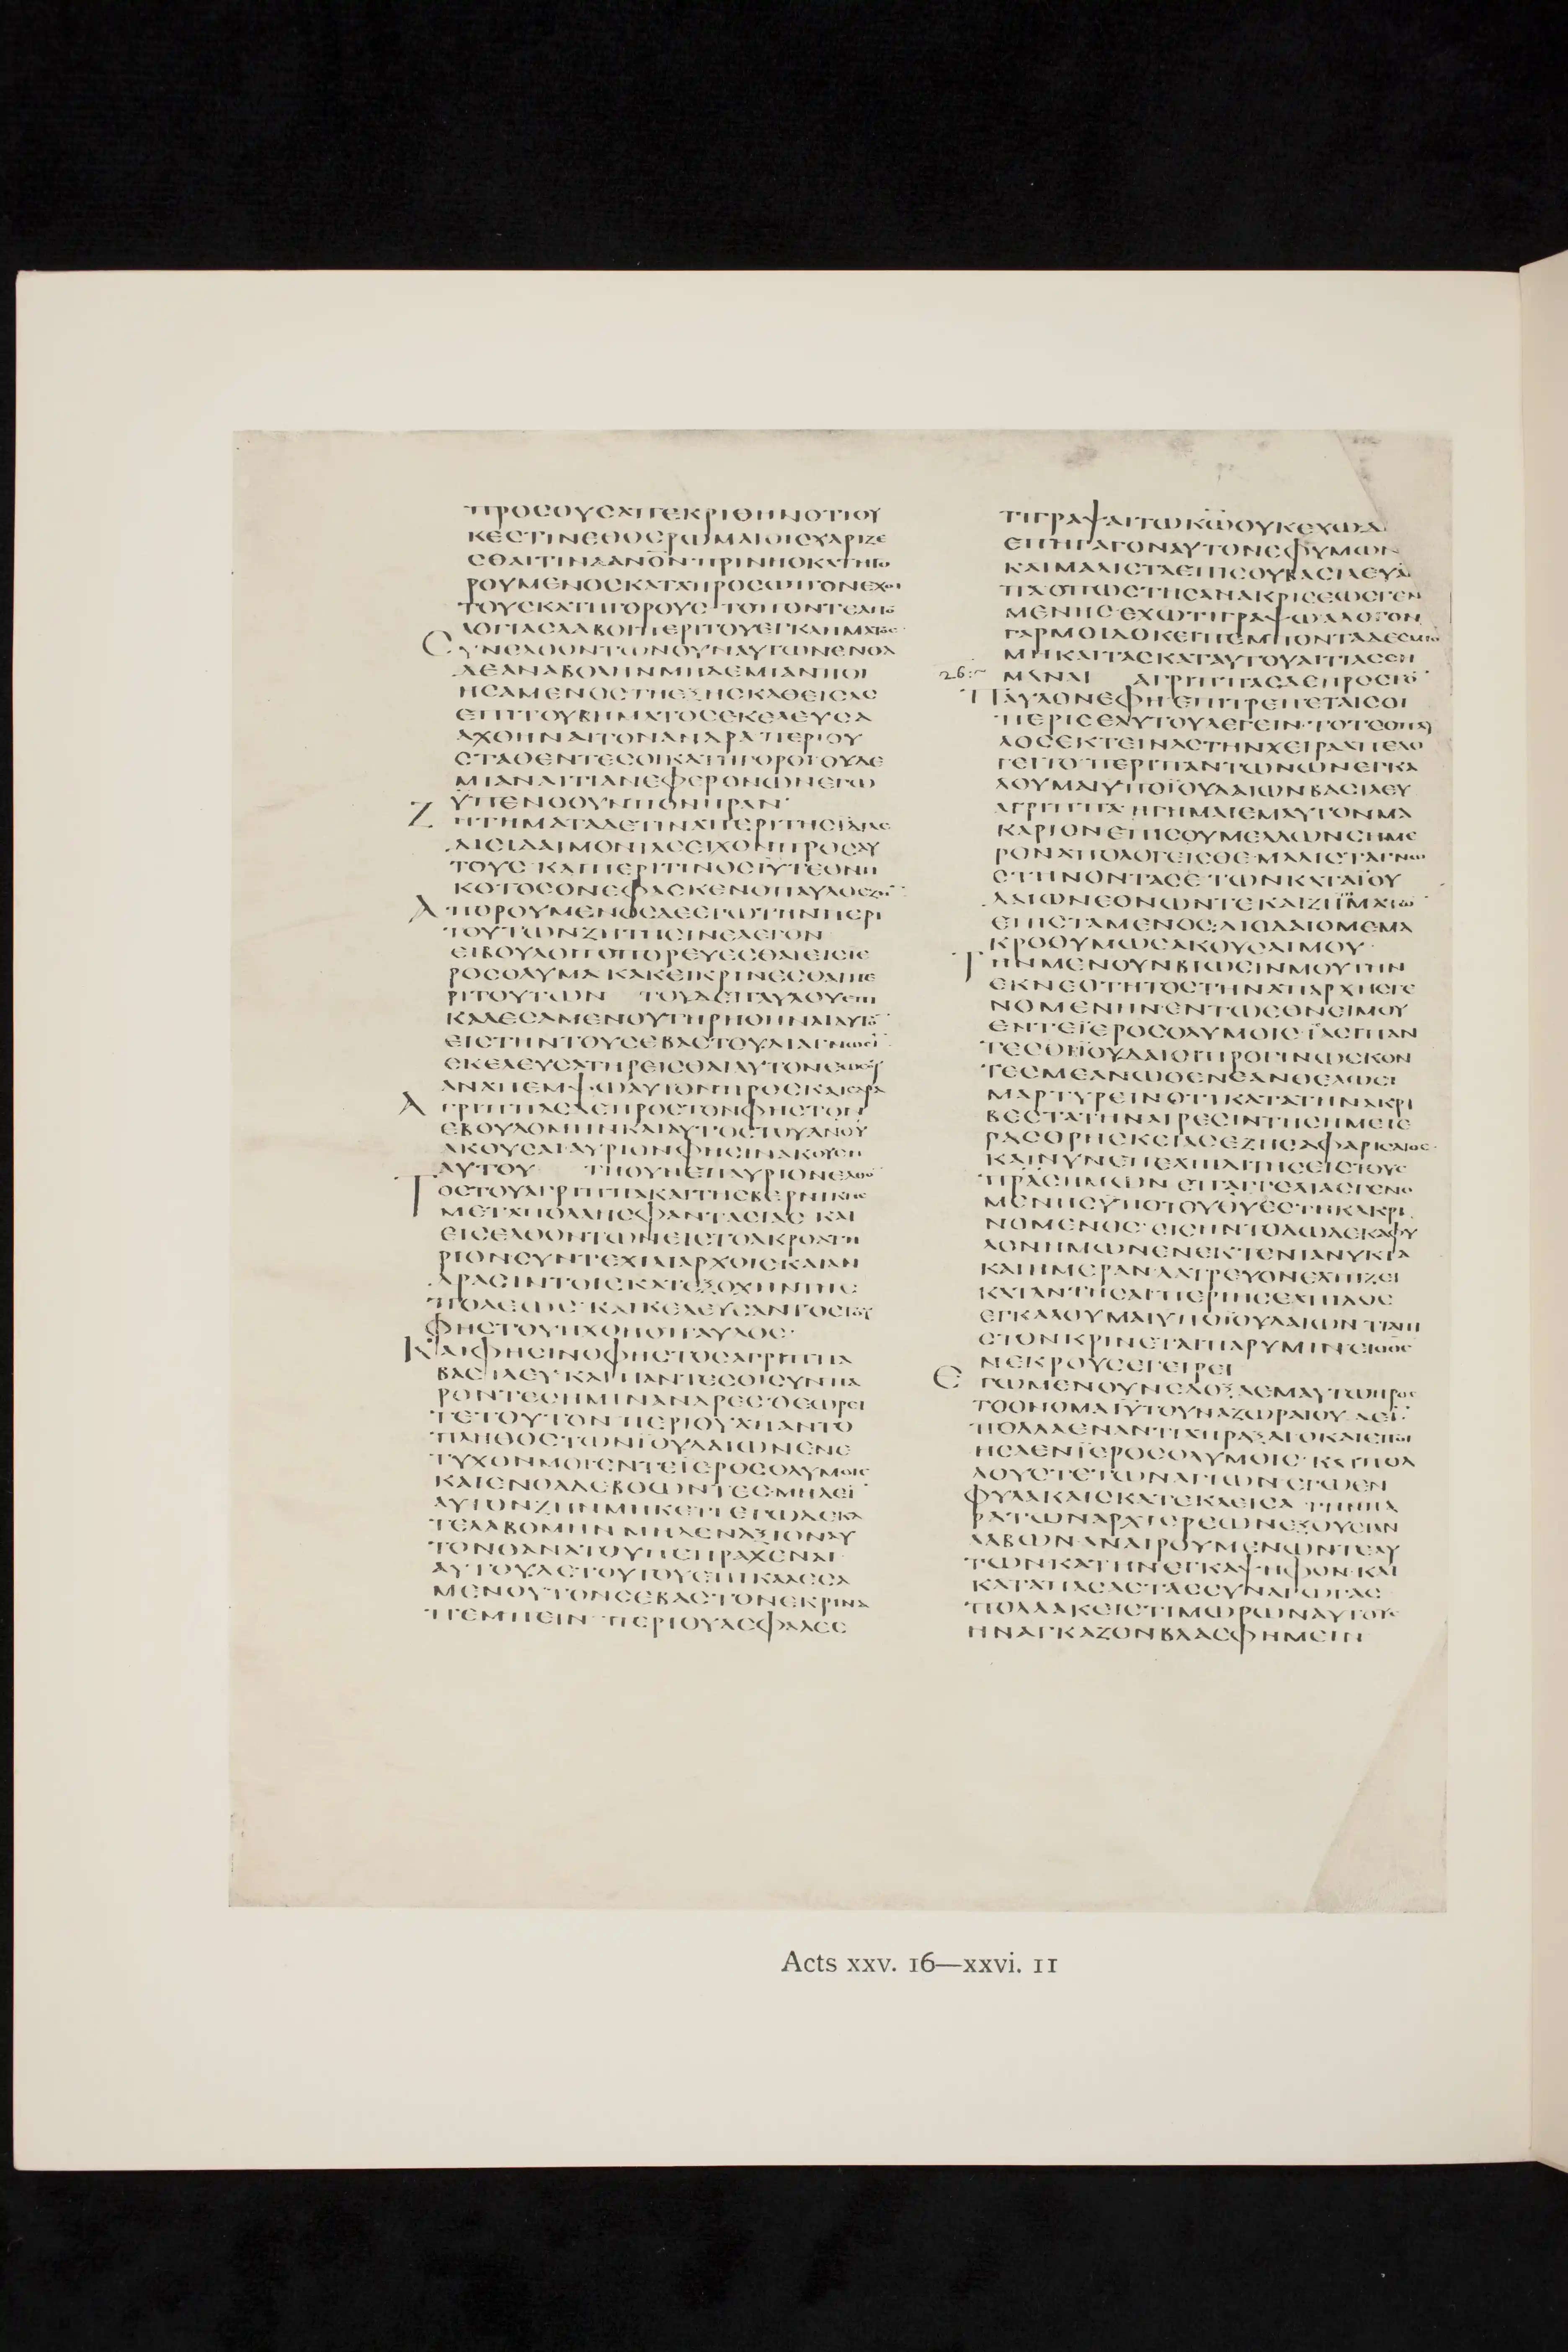 ΠΡΟϹΟΥϹΑΠΕΚΡΙΘΗΝΟΤΙΟΥ
ΚΕϹΤΙΝΕΘΟϹΡΩΜΑΙΟΙϹΧΑΡΙΖΕ
ϹΘΑΙΤΙΝΑΑΝΟΝΠΡΙΝΗΟΚΑΤΗΓΟ
ΡΟΥΜΕΝΟϹΚΑΤΑΠΡΟϹΩΠΟΝΕΧΟΙ
ΤΟΥϹΚΑΤΗΓΟΡΟΥϹ ΤΟΠΟΝΤΕΑΠΟ
ΛΟΓΙΑϹΛΑΒΟΙΠΕΡΙΤΟΥΕΓΚΛΗΜΑΤΟϹ
ϹΥΝΕΛΘΟΝΤΩΝΟΥΝΑΥΤΩΝΕΝΘΑ
ΔΕΑΝΑΒΟΛΗΝΜΗΔΕΜΙΑΝΠΟΙ
ΗϹΑΜΕΝΟϹΤΗΕΞΗϹΚΑΘΕΙϹΑϹ
ΕΠΙΤΟΥΒΗΜΑΤΟϹΕΚΕΛΕΥϹΑ
ΑΧΘΗΝΑΙΤΟΝΑΝΔΡΑ ΠΕΡΙΟΥ
ϹΤΑΘΕΝΤΕϹΟΙΚΑΤΗΓΟΡΟΙΟΥΔΕ
ΜΙΑΝΑΙΤΙΑΝΕΦΕΡΟΝΩΝΕΓΩ
ΫΠΕΝΟΟΥΝΠΟΝΗΡΑΝ·
ΖΗΤΗΜΑΤΑΔΕΤΙΝΑΠΕΡΙΤΗϹΙΔΙΑϹ
ΔΙϹΙΔΑΙΜΟΝΙΑϹΕΙΧΟΝΠΡΟϹΑΥ
ΤΟΥϹ ΚΑΙΠΕΡΙΤΙΝΟϹΙΥΤΕΘΝΗ
ΚΟΤΟϹΟΝΕΦΑϹΚΕΝΟΠΑΥΛΟϹΖΗ
ΑΠΟΡΟΥΜΕΝΟϹΔΕΕΓΩΤΗΝΠΕΡΙ
ΤΟΥΤΩΝΖΗΤΗϹΙΝΕΛΕΓΟΝ
ΕΙΒΟΥΛΟΙΤΟΠΟΡΕΥΕϹΘΑΙΕΙϹΙΕ
ΡΟϹΟΛΥΜΑ ΚΑΚΕΙΚΡΙΝΕϹΘΑΙΠΕ
ΡΙΤΟΥΤΩΝ ΤΟΥΔΕΠΑΥΛΟΥΕΠΙ
ΚΑΛΕϹΑΜΕΝΟΥΤΗΡΗΘΗΝΑΙΑΥΤΟ
ΕΙϹΤΗΝΤΟΥϹΕΒΑϹΤΟΥΔΙΑΓΝΩϹΙ
ΕΚΕΛΕΥϹΑΤΗΡΕΙϹΘΑΙΑΥΤΟΝΕΩϹΟΥ
ΑΝΑΠΕΜΨΩΑΥΤΟΝΠΡΟϹΚΑΙϹΑΡΑ
ΑΓΡΙΠΠΑϹΔΕΠΡΟϹΤΟΝΦΗϹΤΟΝ
ΕΒΟΥΛΟΜΗΝΚΑΙΑΥΤΟϹΤΟΥΑΝΟΥ
ΑΚΟΥϹΑΙ ΑΥΡΙΟΝΦΗϹΙΝΑΚΟΥϹΗ
ΑΥΤΟΥ ΤΗΟΥΝΕΠΑΥΡΙΟΝΕΛΘΟ
ΤΟϹΤΟΥΑΓΡΙΠΠΑΚΑΙΤΗϹΒΕΡΝΙΚΗϹ
ΜΕΤΑΠΟΛΛΗϹΦΑΝΤΑϹΙΑϹ ΚΑΙ
ΕΙϹΕΛΘΟΝΤΩΝΕΙϹΤΟΑΚΡΟΑΤΗ
ΡΙΟΝϹΥΝΤΕΧΙΛΙΑΡΧΟΙϹΚΑΙΑΝ
ΔΡΑϹΙΝΤΟΙϹΚΑΤΕΞΟΧΗΝΤΗϹ
ΠΟΛΕΩϹ ΚΑΙΚΕΛΕΥϹΑΝΤΟϹΤΟΥ
ΦΗϹΤΟΥΗΧΘΗΟΠΑΥΛΟϹ·
ΚΑΙΦΗϹΙΝΟΦΗϹΤΟϹΑΓΡΙΠΠΑ
ΒΑϹΙΛΕΥΚΑΙΠΑΝΤΕϹΟΙϹΥΝΠΑ
ΡΟΝΤΕϹΗΜΙΝΑΝΔΡΕϹ ΘΕΩΡΕΙ
ΤΕΤΟΥΤΟΝ ΠΕΡΙΟΥΑΠΑΝΤΟ
ΠΛΗΘΟϹΤΩΝΪΟΥΔΑΙΩΝΕΝΕ
ΤΥΧΟΝΜΟΙΕΝΤΕΪΕΡΟϹΟΛΥΜΟΙϹ
ΚΑΙΕΝΘΑΔΕΒΟΩΝΤΕϹ ΜΗΔΕΙ
ΑΥΤΟΝΖΗΝΜΗΚΕΤΙ ΕΓΩΔΕΚΑ
ΤΕΛΑΒΟΜΗΝ ΜΗΔΕΝΑΞΙΟΝΑΥ
ΤΟΝΘΑΝΑΤΟΥΠΕΠΡΑΧΕΝΑΙ
ΑΥΤΟΥΔΕΤΟΥΤΟΥΕΠΙΚΑΛΕϹΑ
ΜΕΝΟΥΤΟΝϹΕΒΑϹΤΟΝΕΚΡΙΝΑ
ΠΕΜΠΕΙΝ ΠΕΡΙΟΥΑϹΦΑΛΕϹ
ΤΙΓΡΑΨΑΙΤΩΚΩΟΥΚΕΧΩΔΙ
ΕΠΗΓΑΓΟΝΑΥΤΟΝΕΦΥΜΩΝ
ΚΑΙΜΑΛΙϹΤΑΕΠΙϹΟΥΒΑϹΙΛΕΥΑ
ΠΑΟΠΩϹΤΗϹΑΝΑΚΡΙϹΕΩϹΓΕΝ
ΜΕΝΗϹ ΕΧΩΤΙΓΡΑΨΩΑΛΟΓΟΝ
ΓΑΡΜΟΙΔΟΚΕΙΠΕΜΠΟΝΤΑΔΕϹΜΙΟ
ΜΗΚΑΙΤΑϹΚΑΤΑΥΤΟΥΑΙΤΙΑϹϹΗ
26:~ ΜΑΝΑΙ ΑΓΡΙΠΠΑϹΔΕΠΡΟϹΤΟ
ΠΑΥΛΟΝΕΦΗ ΕΠΙΤΡΕΠΕΤΑΙϹΟΙ
ΠΕΡΙϹΕΑΥΤΟΥΛΕΓΕΙΝ·ΤΟΤΕΟΠΑΥ
ΛΟϹΕΚΤΕΙΝΑϹΤΗΝΧΕΙΡΑΑΠΕΛΟ
ΓΕΙΤΟ ΠΕΡΙΠΑΝΤΩΝΩΝΕΓΚΑ
ΛΟΥΜΑΙΥΠΟΪΟΥΔΑΙΩΝΒΑϹΙΛΕΥ
ΑΓΡΙΠΠΑ ΗΓΗΜΑΙΕΜΑΥΤΟΝΜΑ
ΚΑΡΙΟΝΕΠΙϹΟΥΜΕΛΛΩΝϹΗΜΕ
ΡΟΝΑΠΟΛΟΓΕΙϹΘΕ·ΜΑΛΙϹΤΑΓΝΩ
ϹΤΗΝΟΝΤΑϹΕ ΤΩΝΚΑΤΑΪΟΥ
ΔΑΙΩΝΕΘΝΩΝΤΕΚΑΙΖΗΤΗΜΑΤΩ
ΕΠΙϹΤΑΜΕΝΟϹ·ΔΙΟΔΑΙΟΜΕΜΑ
ΚΡΟΘΥΜΩϹΑΚΟΥϹΑΙΜΟΥ·
ΤΗΝΜΕΝΟΥΝΒΙΩϹΙΝΜΟΥΤΗΝ
ΕΚΝΕΟΤΗΤΟϹΤΗΝΑΠΑΡΧΗϹΓΕ
ΝΟΜΕΝΗΝ·ΕΝΤΩΕΘΝΕΙΜΟΥ
ΕΝΤΕΪΕΡΟϹΟΛΥΜΟΙϹ·ΪϹΑϹΙΠΑΝ
ΤΕϹΟΙΪΟΥΔΑΙΟΙΠΡΟΓΙΝΩϹΚΟΝ
ΤΕϹΜΕΑΝΩΘΕΝΕΑΝΘΕΛΩϹΙ
ΜΑΡΤΥΡΕΙΝΟΤΙΚΑΤΑΤΗΝΑΚΡΙ
ΒΕϹΤΑΤΗΝΑΙΡΕϹΙΝΤΗϹΗΜΕΤΕ
ΡΑϹΘΡΗϹΚΕΙΑϹΕΖΗϹΑΦΑΡΙϹΑΙΟϹ
ΚΑΙΝΥΝΕΠΕΛΠΙΔΙΤΗϹΕΙϹΤΟΥϹ
ΠΡΑϹΗΜΩΝ ΕΠΑΓΓΕΛΙΑϹΓΕΝΟ
ΜΕΝΗϹΫΠΟΤΟΥΘΥΕϹΤΗΚΑΚΡΙ
ΝΟΜΕΝΟϹ·ΕΙϹΗΝΤΟΔΩΔΕΚΑΦΥ
ΛΟΝΗΜΩΝΕΝΕΚΤΕΝΙΑΝΥΚΤΑ
ΚΑΙΗΜΕΡΑΝ ΛΑΤΡΕΥΟΝΕΛΠΙΖΕΙ
ΚΑΤΑΝΤΗϹΑΙ ΠΕΡΙΗϹΕΛΠΙΔΟϹ
ΕΓΚΑΛΟΥΜΑΙΥΠΟΪΟΥΔΑΙΩΝ ΤΙΑΠΙ
ϹΤΟΝΚΡΙΝΕΤΑΙΠΑΡΥΜΙΝΕΙΟΘϹ
ΝΕΚΡΟΥϹΕΓΕΙΡΕΙ
ΕΓΩΜΕΝΟΥΝΕΔΟΞΑΕΜΑΥΤΩΠΡΟϹ
ΤΟΟΝΟΜΑΙΥΤΟΥΝΑΖΩΡΑΙΟΥ ΔΕΙ
ΠΟΛΛΑΕΝΑΝΤΙΑΠΡΑΞΑΙΟΚΑΙΕΠΟΙ
ΗϹΑΕΝΪΕΡΟϹΟΛΥΜΟΙϹ·ΚΑΙΠΟΛ
ΛΟΥϹΤΕΤΩΝΑΓΙΩΝ ΕΓΩΕΝ
ΦΥΛΑΚΑΙϹΚΑΤΕΚΛΕΙϹΑ ΤΗΝΠΑ
ΡΑΤΩΝΑΡΧΙΕΡΕΩΝΕΞΟΥϹΙΑΝ
ΛΑΒΩΝ·ΑΝΑΙΡΟΥΜΕΝΩΝΤΕΑΥ
ΤΩΝΚΑΤΗΝΕΓΚΑΨΗΦΟΝ·ΚΑΙ
ΚΑΤΑΠΑϹΑϹΤΑϹϹΥΝΑΓΩΓΑϹ
ΠΟΛΛΑΚΕΙϹΤΙΜΩΡΩΝΑΥΤΟΥϹ
ΗΝΑΓΚΑΖΟΝΒΛΑϹΦΗΜΕΙΝ
Acts xxv. 16—xxvi. 11